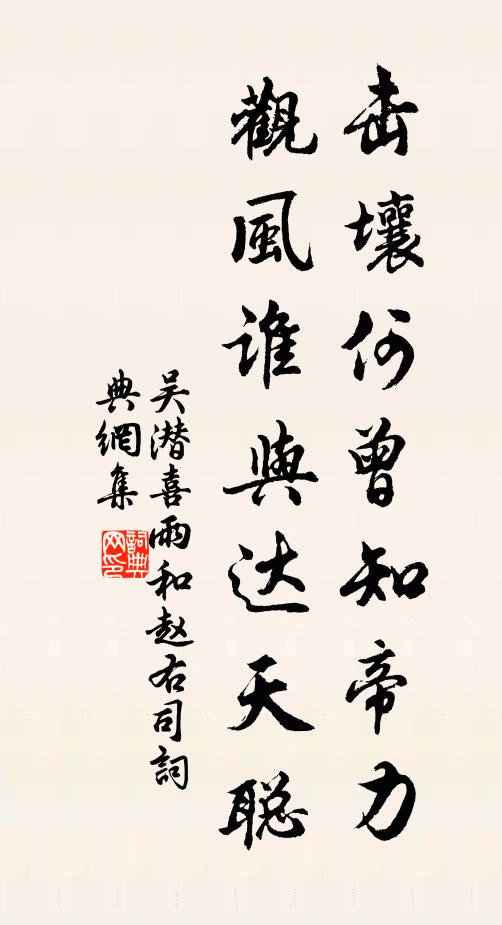 击壤何曾知帝力
觀風谁與达天聪
吴潜喜雨和赵右司詞
典網集
詞典网印